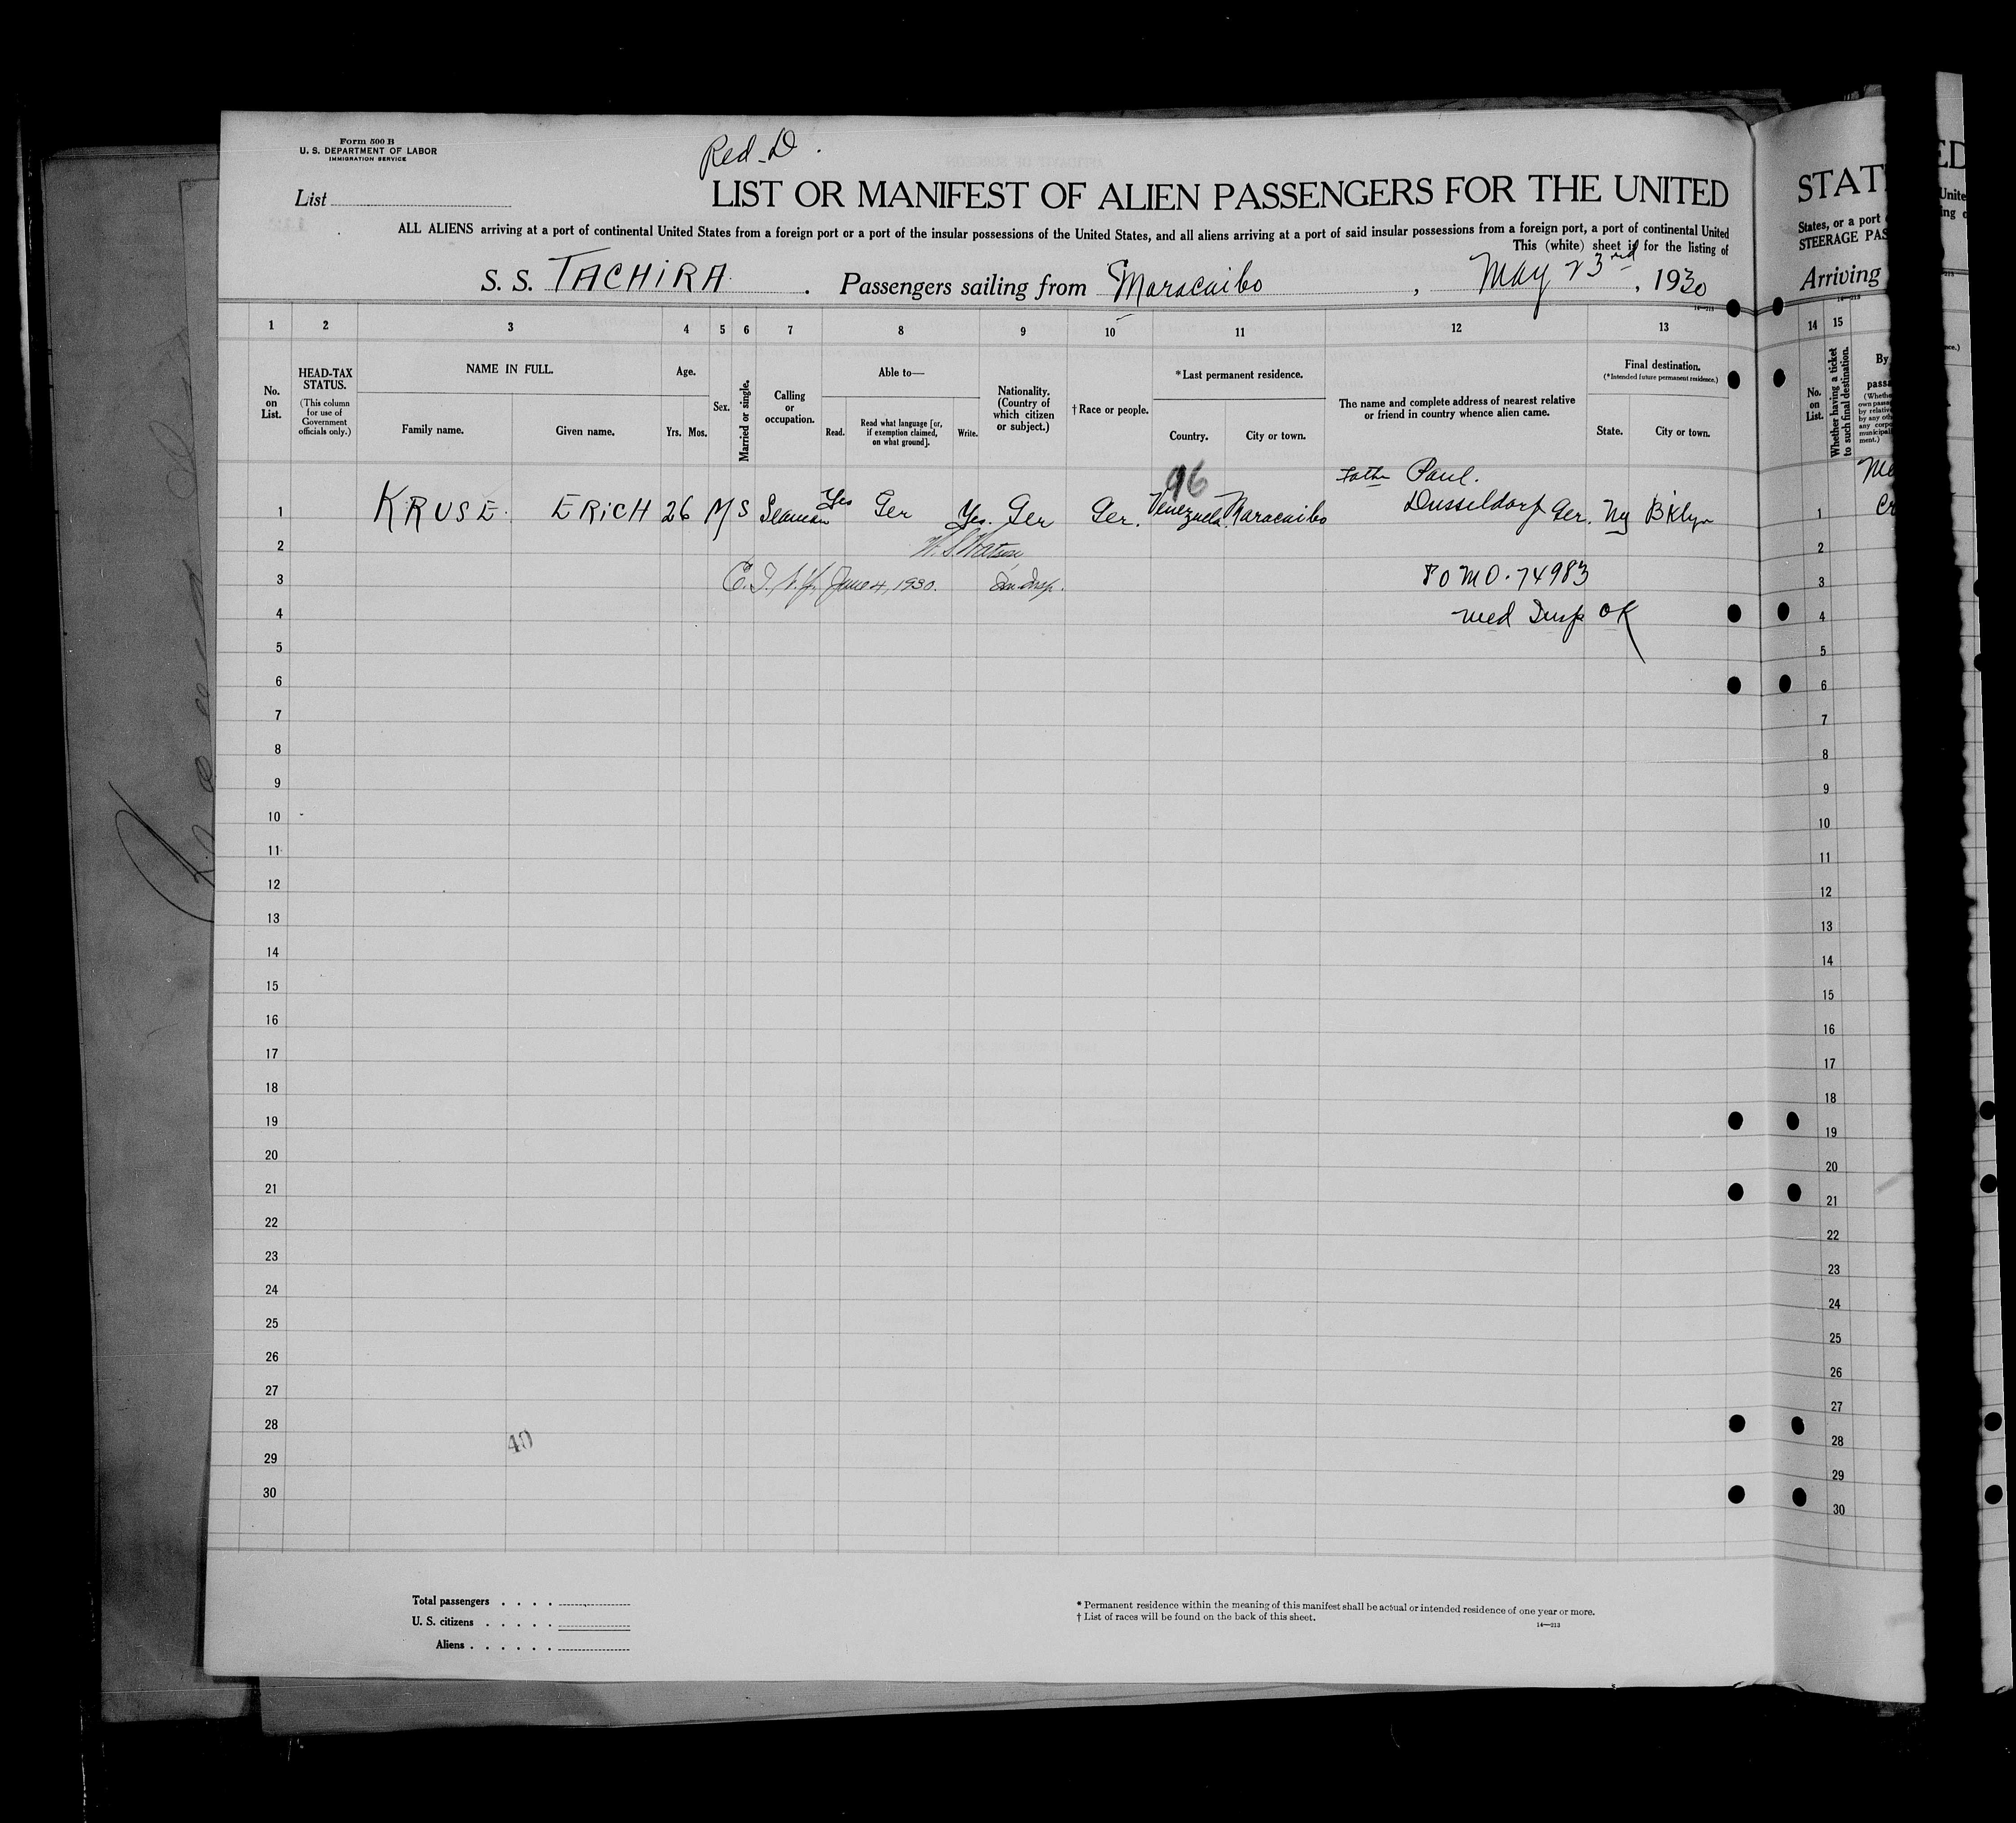 Form 500 B
U. S. DEPARTMENT OF LABOR
IMMIGRATION SERVICE
Red-D.
List
LIST OR MANIFEST OF ALIEN PASSENGERS FOR THE UNITED
ALL ALIENS arriving at a port of continental United States from a foreign port or a port of the insular possessions of the United States, and all aliens arriving at a port of said insular possessions from a foreign port, a port of continental United
This (white) sheet is for the listing of
S. S. TACHIRA. Passengers sailing from Maracaibo, May 23rd, 1930
16—213
1 2 3 4 5 6 7 8 9 10 11 12 13
No. on List.
HEAD-TAX STATUS.
(This column for use of Government officials only.)
NAME IN FULL.
Family name.
Given name.
Age.
Yrs. Mos.
Sex.
Married or single.
Calling or occupation.
Able to—
Read.
Read what language [or, if exemption claimed, on what ground].
Write.
Nationality. (Country of which citizen or subject.)
† Race or people.
* Last permanent residence.
Country.
City or town.
The name and complete address of nearest relative or friend in country whence alien came.
Final destination.
(* Intended future permanent residence.)
State.
City or town.
96
Father Paul.
1 KRUSE. ERICH 26 M S Seaman Yes Ger Yes. Ger Ger. Venezuela Maracaibo Dusseldorf Ger. Ny Bklyn
2 W. S. Watson
3 June 4, 1930. Im. Insp. 74983
4 Med Insp OK
5
6
7
8
9
10
11
12
13
14
15
16
17
18
19
20
21
22
23
24
25
26
27
28
40
29
30
Total passengers
U. S. citizens
Aliens
* Permanent residence within the meaning of this manifest shall be actual or intended residence of one year or more.
† List of races will be found on the back of this sheet.
16—213
STAT
States, or a port
STEERAGE PAS
Arriving
14 15
No. on List.
Whether having a ticket to such final destination.
By
passa
(Whethe
own passa
by relative
by any oth
any corpo
municipali
ment.)
1
2
3
4
5
6
7
8
9
10
11
12
13
14
15
16
17
18
19
20
21
22
23
24
25
26
27
28
29
30
ED
Unite